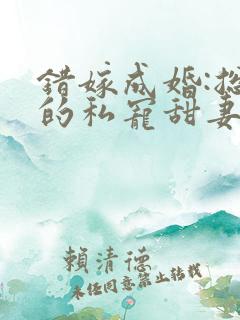 错嫁成婚:总
的私宠甜妻
赖清德
未经同意禁止转载